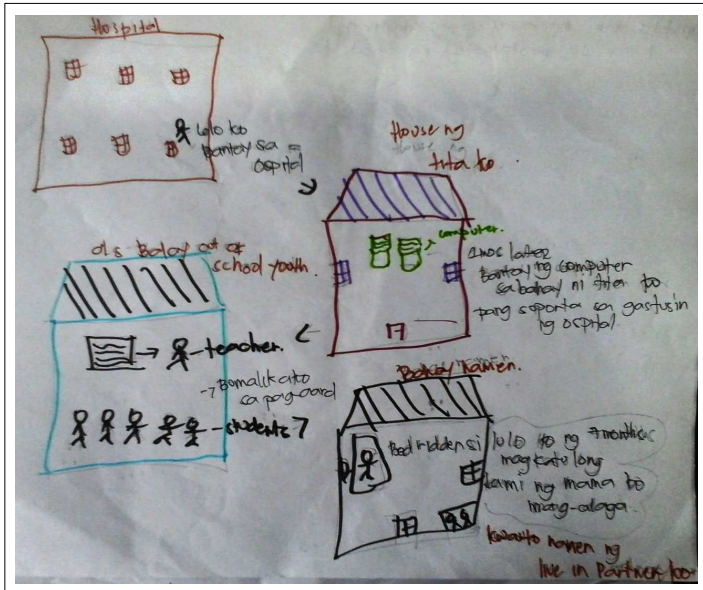 Hospital
lolo ko
bantay sa
ospital
House ng
tita ko.
computer.
2mos later
Bantay ng computer
sa bahay ni tita ko
pang soporta sa gastusin
ng ospital.
als Balay out of
school youth.
teacher.
Bomalik ako
sa pag-aaral
students
Bahay namen.
Bedridden si lolo ko ng 7 months
magkatolong
kami ng mama ko
mag-alaga.
kwarto namen ng
live in Partner ko